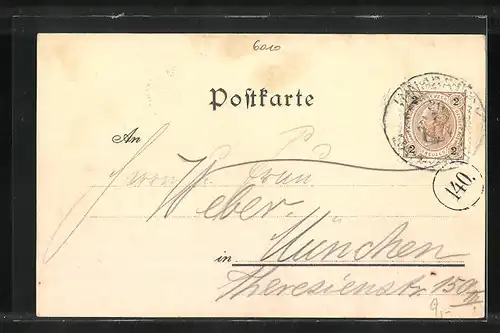 6010
Postkarte
2
2 2
An
140.
Herrn u. Frau
Weber
in München
Theresienstr. 150
9,-